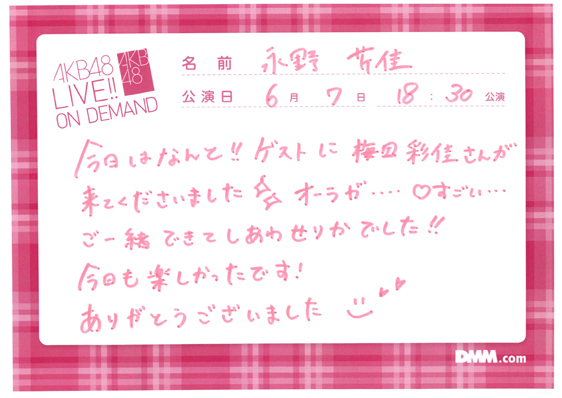 AKB48
LIVE!!
ON DEMAND
AKB
48
名 前 永野 芹佳
公演日 6月 7日 18:30公演
今日はなんと!! ゲストに 梅田 彩佳さんが
来てくださいました
オーラが‥‥ ♡すごい…
ご一緒できてしあわせりかでした!!
今日も楽しかったです!
ありがとうございました
DMM.com